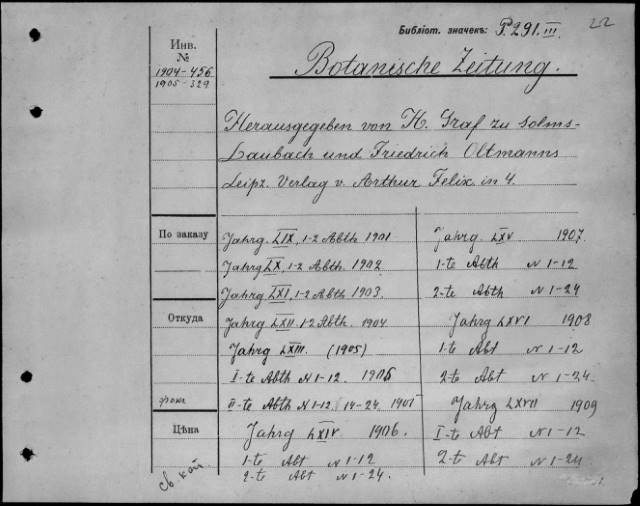 Библіот. значекъ: P.291.III
22
Инв.
№
1904-456
1905-329
Botanische Zeitung.
Herausgegeben von H. Graf zu Solms-
Laubach und Friedrich Oltmanns
Leipz. Verlag v. Arthur Felix. in 4.
По заказу
Откуда
Цѣна
Jahrg. LIX, 1-2 Abth 1901
Jahrg LX, 1-2 Abth. 1902
Jahrg LXI, 1-2 Abth. 1903.
Jahrg LXII 1-2 Abth. 1904
Jahrg LXIII. (1905)
I-te Abth N 1-12. 1905
II-te Abth N 1-12 14-24. 1905
Jahrg LXIV 1906.
1-te Abt N 1-12
2-te Abt N 1-24.
Jahrg. LXV 1907.
1-te Abth N 1-12
2-te Abth N 1-24
Jahrg LXVI 1908
1-te Abt N 1-12
2-te Abt N 1-24.
Jahrg LXVII 1909
I-te Abt N 1-12
2-te Abt N 1-24